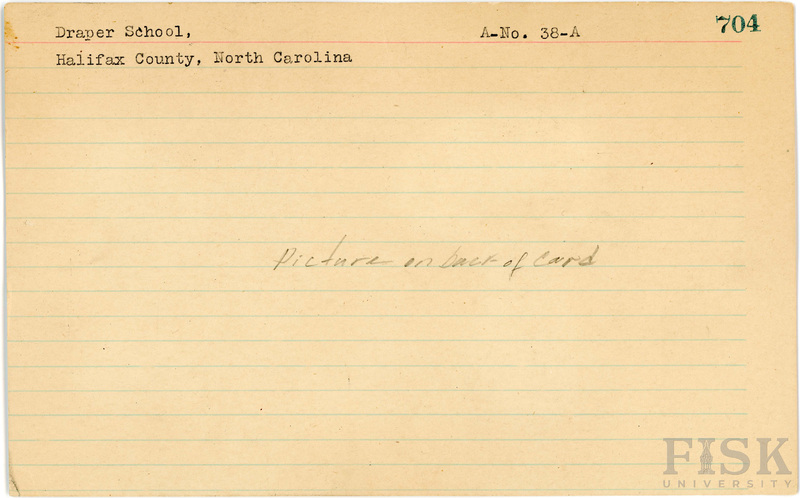 Draper School, A-No. 38-A 704
Halifax County, North Carolina
Picture on back of card
FISK
UNIVERSITY